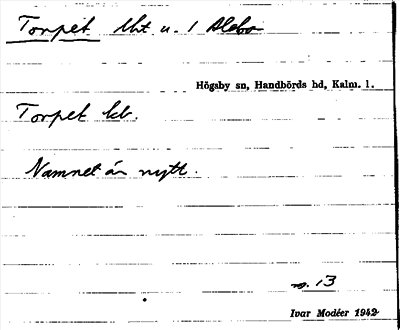 Torpet lht u. 1 Alebo
Högsby sn, Handbörds hd, Kalm. l.
Torpet kb.
Namnet är nytt.
s. 13
Ivar Modéer 1942